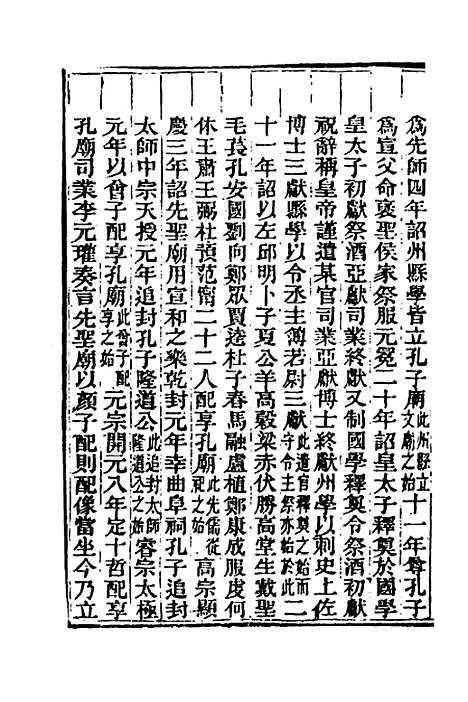 為先師四年詔州縣學皆立孔子廟此州縣立文廟之始十一年尊孔子
為宣父命褒聖侯家祭服元冕二十年詔皇太子釋奠於國學
皇太子初獻祭酒亞獻司業終獻又制國學釋奠令祭酒初獻
祝辭稱皇帝謹遣某官司業亞獻博士終獻州學以刺史上佐
博士三獻縣學以令丞主簿若尉三獻此遣官釋奠之始而守令主祭亦始於此二
十一年詔以左邱明卜子夏公羊高穀梁赤伏勝高堂生戴聖
毛萇孔安國劉向鄭眾賈逵杜子春馬融盧植鄭康成服虔何
休王肅王弼杜預范甯二十二人配享孔廟此先儒從祀之始高宗顯
慶三年詔先聖廟用宣和之樂乾封元年幸曲阜祠孔子追封
太師中宗天授元年追封孔子隆道公此追封太師隆道公之始睿宗太極
元年以曾子配享孔廟此曾子配享之始元宗開元八年定十哲配享
孔廟司業李元瓘奏言先聖廟以顏子配則配像當坐今乃立